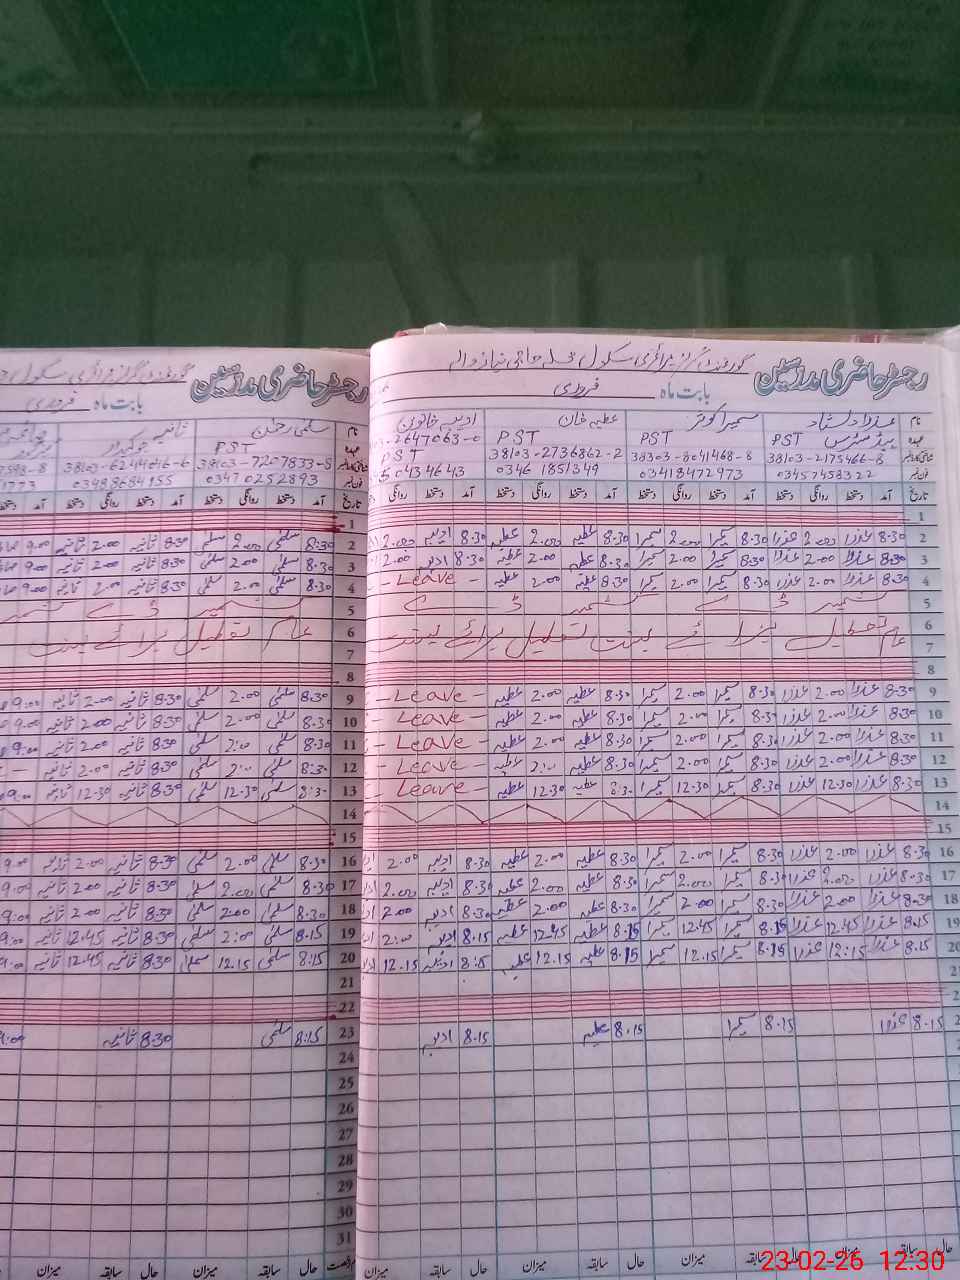 رجسٹر حاضری مدرسین گورنمنٹ گرلز پرائمری سکول محلہ حاجی نیاز والہ
بابت ماہ فروری
نام سمیرا کوثر عطیہ خان
عہدہ PST PST PST PST
38103-2175466-8 38303-8041468-8 38103-2736862-2 2647063-0
فون نمبر 03457458322 03418472973 0346 1851349 50434643
تاریخ آمد دستخط روانگی دستخط آمد دستخط روانگی دستخط آمد دستخط روانگی دستخط آمد دستخط روانگی
1
2 8.30 عذرا 2.00 عذرا 8.30 سمیرا 2.00 سمیرا 8.30 عطیہ 2.00 عطیہ 8.30 ادیبہ 2.00
3 8.30 عذرا 2.00 عذرا 8.30 سمیرا 2.00 سمیرا 8.30 عطیہ 2.00 عطیہ 8.30 ادیبہ 2.00
4 8.30 عذرا 2.00 عذرا 8.30 سمیرا 2.00 سمیرا 8.30 عطیہ 2.00 عطیہ - Leave -
5 کشمیر ڈے کشمیر ڈے
6
عام تعطیل برائے بسنت تعطیل برائے بسنت
7
8
9 8.30 عذرا 2.00 عذرا 8.30 سمیرا 2.00 سمیرا 8.30 عطیہ 2.00 عطیہ - Leave -
10 8.30 عذرا 2.00 عذرا 8.30 سمیرا 2.00 سمیرا 8.30 عطیہ 2.00 عطیہ - Leave -
11 8.30 عذرا 2.00 عذرا 8.30 سمیرا 2.00 سمیرا 8.30 عطیہ 2.00 عطیہ - Leave -
12 8.30 عذرا 2.00 عذرا 8.30 سمیرا 2.00 سمیرا 8.30 عطیہ 2:00 عطیہ - Leave -
13 8.30 عذرا 12.30 عذرا 8.30 سمیرا 12.30 سمیرا 8:30 عطیہ 12.30 عطیہ - Leave -
14
15
16 8.30 عذرا 2.00 عذرا 8.30 سمیرا 2.00 سمیرا 8.30 عطیہ 2.00 عطیہ 8.30 ادیبہ 2.00
17 8.30 عذرا 2.00 عذرا 8.30 سمیرا 2.00 سمیرا 8.30 عطیہ 2.00 عطیہ 8.30 ادیبہ 2.00
18 8.30 عذرا 2.00 عذرا 8.30 سمیرا 2.00 سمیرا 8.30 عطیہ 2.00 عطیہ 8.30 ادیبہ 2.00
19 8.15 عذرا 12.45 عذرا 8.15 سمیرا 12.45 سمیرا 8.15 عطیہ 12.45 عطیہ 8.15 ادیبہ 2:00
20 8.15 عذرا 12:15 عذرا 8.15 سمیرا 12.15 سمیرا 8.15 عطیہ 12.15 عطیہ 8.15 ادیبہ 12.15
8.15 عذرا 8.15 سمیرا 8.15 عطیہ 8.15 ادیبہ
حال سابقہ میزان حال سابقہ میزان حال سابقہ میزان حال سابقہ میزان
رجسٹر حاضری مدرسین گورنمنٹ گرلز پرائمری سکول
بابت ماہ فروری
نام سلمیٰ رحمٰن ثانیہ
عہدہ PST چوکیدار
38103-7207833-8 38103-6244046-6 7598-8
فون نمبر 0347 0252893 03488684155 1773
تاریخ آمد دستخط روانگی دستخط آمد دستخط روانگی دستخط آمد
1
2 8:30 سلمیٰ 2.00 سلمیٰ 8:30 ثانیہ 2.00 ثانیہ 9.00
3 8.30 سلمیٰ 2.00 سلمیٰ 8.30 ثانیہ 2.00 ثانیہ 9.00
4 8.30 سلمیٰ 2.00 سلمیٰ 8.30 ثانیہ 2.00 ثانیہ 9.00
5 کشمیر ڈے کشمیر
6
عام تعطیل برائے بسنت
7
8
9 8.30 سلمیٰ 2.00 سلمیٰ 8.30 ثانیہ 2.00 ثانیہ 9.00
10 8.30 سلمیٰ 2.00 سلمیٰ 8.30 ثانیہ 2.00 ثانیہ 9.00
11 8.30 سلمیٰ 2:00 سلمیٰ 8.30 ثانیہ 2.00 ثانیہ 9:00
12 8:30 سلمیٰ 2:00 سلمیٰ 8.30 ثانیہ 2.00 ثانیہ -
13 8:30 سلمیٰ 12.30 سلمیٰ 8.30 ثانیہ 12.30 ثانیہ 9.00
14
15
16 8.30 سلمیٰ 2.00 سلمیٰ 8.30 ثانیہ 2.00 ثانیہ 9.00
17 8.30 سلمیٰ 2.00 سلمیٰ 8.30 ثانیہ 2.00 ثانیہ 9:00
18 8.30 سلمیٰ 2.00 سلمیٰ 8.30 ثانیہ 2.00 ثانیہ 9:00
19 8.15 سلمیٰ 2:00 سلمیٰ 8.30 ثانیہ 12.45 ثانیہ 9:00
20 8:15 سلمیٰ 12.15 سلمیٰ 8.30 ثانیہ 12.45 ثانیہ 9:00
21
22
23 8:15 سلمیٰ 8.30 ثانیہ 9:00
24
25
26
27
28
29
30
31
حال سابقہ میزان حال سابقہ میزان
23-02-26 12:30